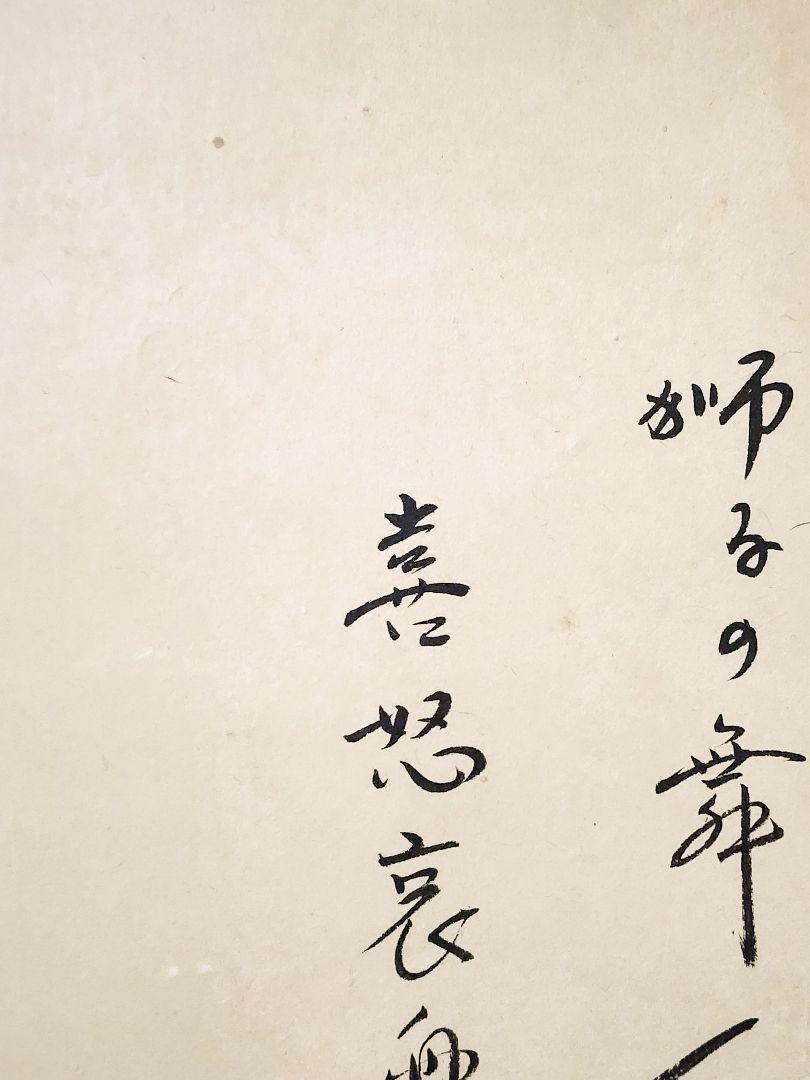 獅子の舞
喜怒哀